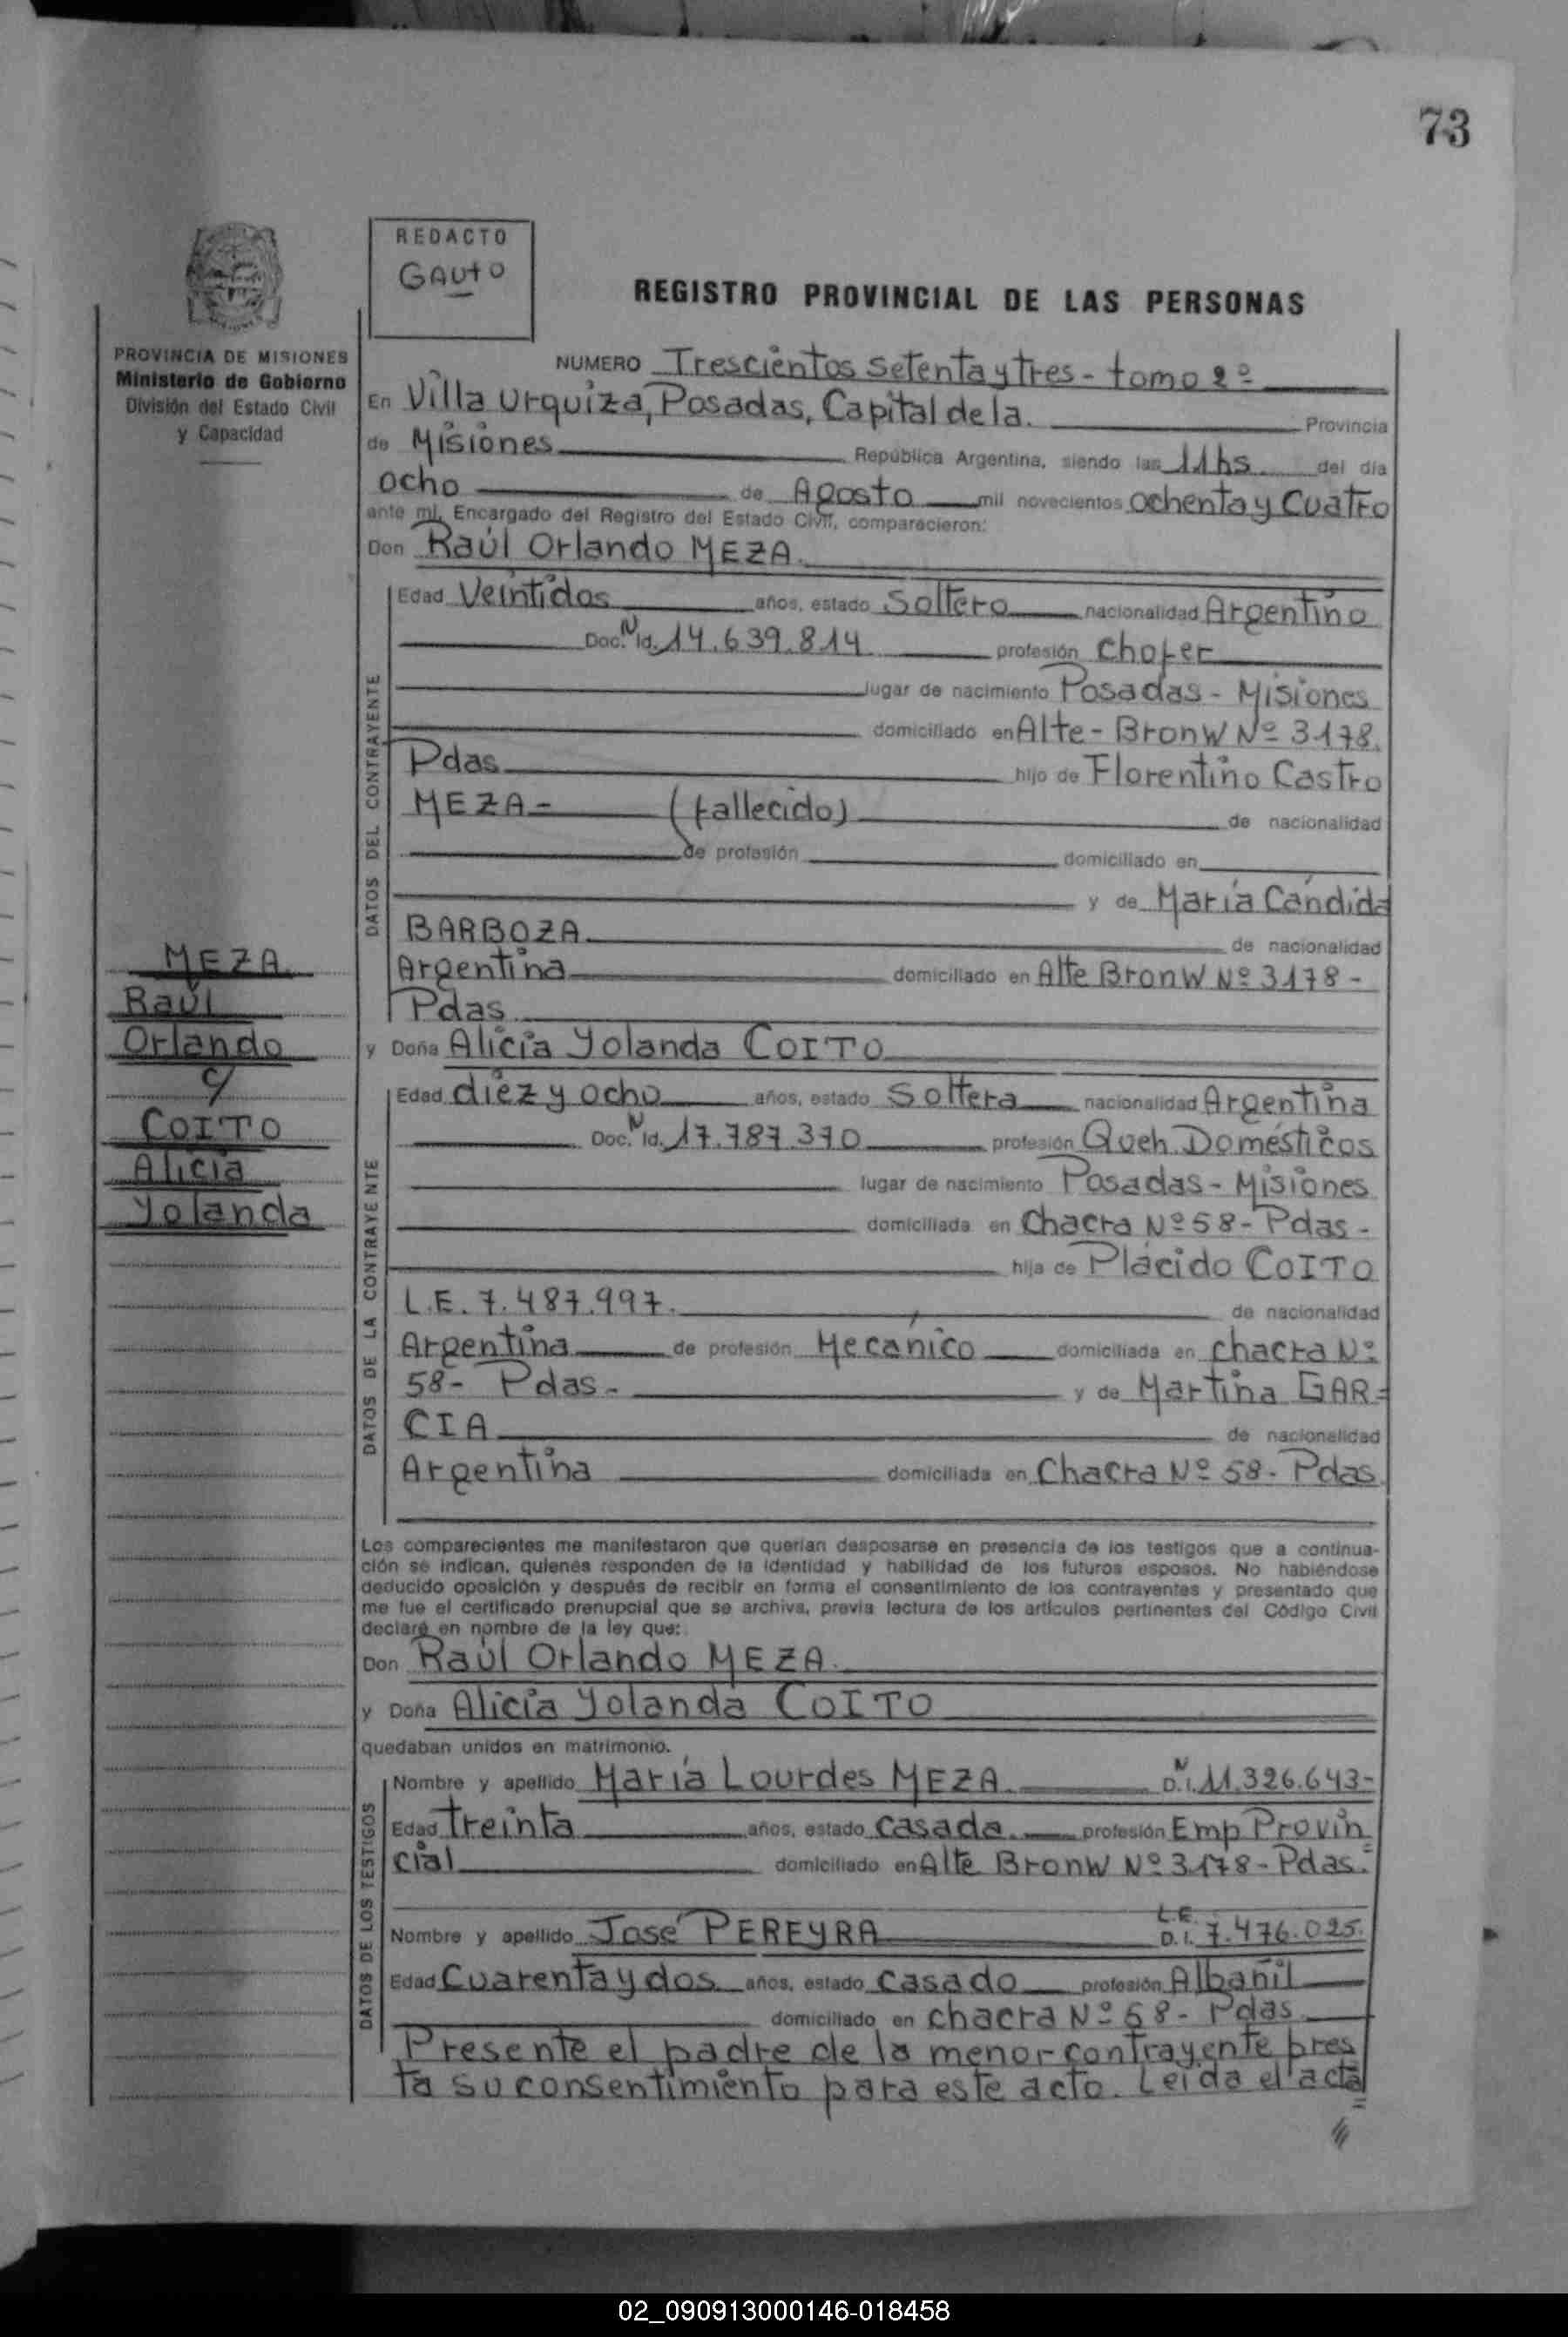 73
REDACTO
GAUTO
REGISTRO PROVINCIAL DE LAS PERSONAS
PROVINCIA DE MISIONES
Ministerio de Gobierno
División del Estado Civil
y Capacidad
NUMERO Trescientos setenta y tres - tomo 2º
En Villa Urquiza, Posadas, Capital de la. Provincia
de Misiones República Argentina, siendo las 11hs del día
ocho de Agosto mil novecientos ochenta y cuatro
ante mí, Encargado del Registro del Estado Civil, comparecieron:
Don Raúl Orlando MEZA.
DATOS DEL CONTRAYENTE
Edad Veintidos años, estado Soltero nacionalidad Argentino
Doc. N Id. 14.639.814 profesión Chofer
lugar de nacimiento Posadas - Misiones
domiciliado en Alte - BronW Nº 3178.
Pdas hijo de Florentino Castro
MEZA - (fallecido) de nacionalidad
de profesión domiciliado en
y de María Cándida
BARBOZA de nacionalidad
Argentina domiciliado en Alte BronW Nº 3178 -
Pdas.
MEZA
Raúl
Orlando
c/
COITO
Alicia
Yolanda
y Doña Alicia Yolanda COITO
DATOS DE LA CONTRAYENTE
Edad diez y ocho años, estado Soltera nacionalidad Argentina
Doc. N Id. 17.787.370 profesión Queh. Domésticos
lugar de nacimiento Posadas - Misiones
domiciliada en Chacra Nº 58 - Pdas -
hija de Plácido COITO
L.E. 7.487.997. de nacionalidad
Argentina de profesión Mecánico domiciliada en chacra Nº
58 - Pdas - y de Martina GAR=
CIA de nacionalidad
Argentina domiciliada en Chacra Nº 58 - Pdas.
Los comparecientes me manifestaron que querían desposarse en presencia de los testigos que a continua-
ción se indican, quienes responden de la identidad y habilidad de los futuros esposos. No habiéndose
deducido oposición y después de recibir en forma el consentimiento de los contrayentes y presentado que
me fue el certificado prenupcial que se archiva, previa lectura de los artículos pertinentes del Código Civil
declaré en nombre de la ley que:
Don Raúl Orlando MEZA.
y Doña Alicia Yolanda COITO
quedaban unidos en matrimonio.
DATOS DE LOS TESTIGOS
Nombre y apellido María Lourdes MEZA. D.N.I. 11.326.643-
Edad treinta años, estado casada. profesión Emp Provin=
cial domiciliado en Alte BronW Nº 3178 - Pdas.
Nombre y apellido José PEREYRA L.E. D.I. 7.476.025.
Edad Cuarenta y dos años, estado casado profesión Albañil
domiciliado en chacra Nº 58 - Pdas.
Presente el padre de la menor contrayente pres
ta su consentimiento para este acto. Leida el acta
02_090913000146-018458